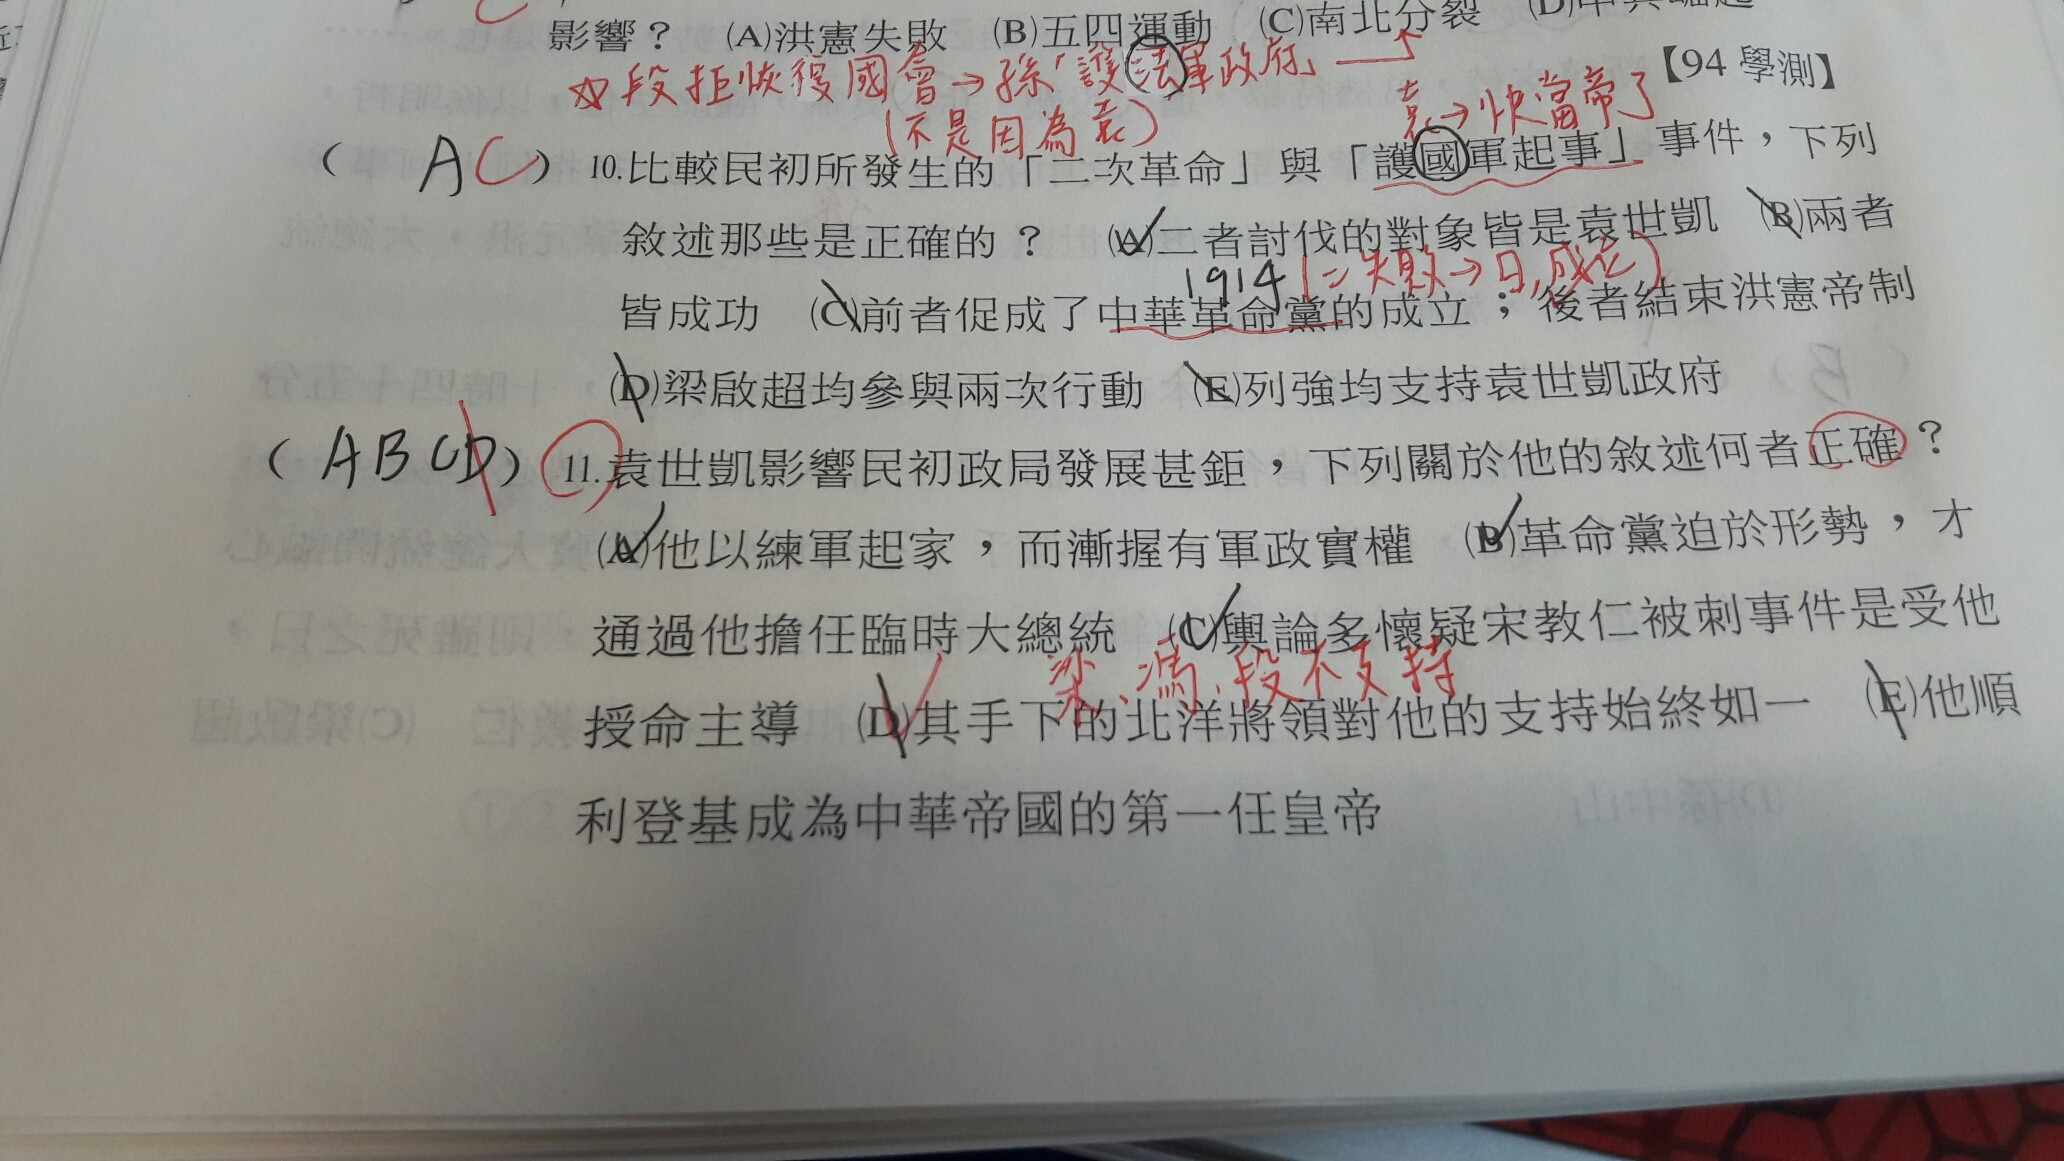 影響？ (A)洪憲失敗 (B)五四運動 (C)南北分裂 (D)中共崛起
☆段拒恢復國會→孫「護法軍政府」
【94 學測】
(不是因為袁)
袁→快當帝了
( AC ) 10.比較民初所發生的「二次革命」與「護國軍起事」事件，下列
敘述那些是正確的？ (A)二者討伐的對象皆是袁世凱 (B)兩者
1914 (二失敗→日,成立)
皆成功 (C)前者促成了中華革命黨的成立；後者結束洪憲帝制
(D)梁啟超均參與兩次行動 (E)列強均支持袁世凱政府
( ABCD ) 11.袁世凱影響民初政局發展甚鉅，下列關於他的敘述何者正確？
(A)他以練軍起家，而漸握有軍政實權 (B)革命黨迫於形勢，才
通過他擔任臨時大總統 (C)輿論多懷疑宋教仁被刺事件是受他
梁、馮、段不支持
授命主導 (D)其手下的北洋將領對他的支持始終如一 (E)他順
利登基成為中華帝國的第一任皇帝